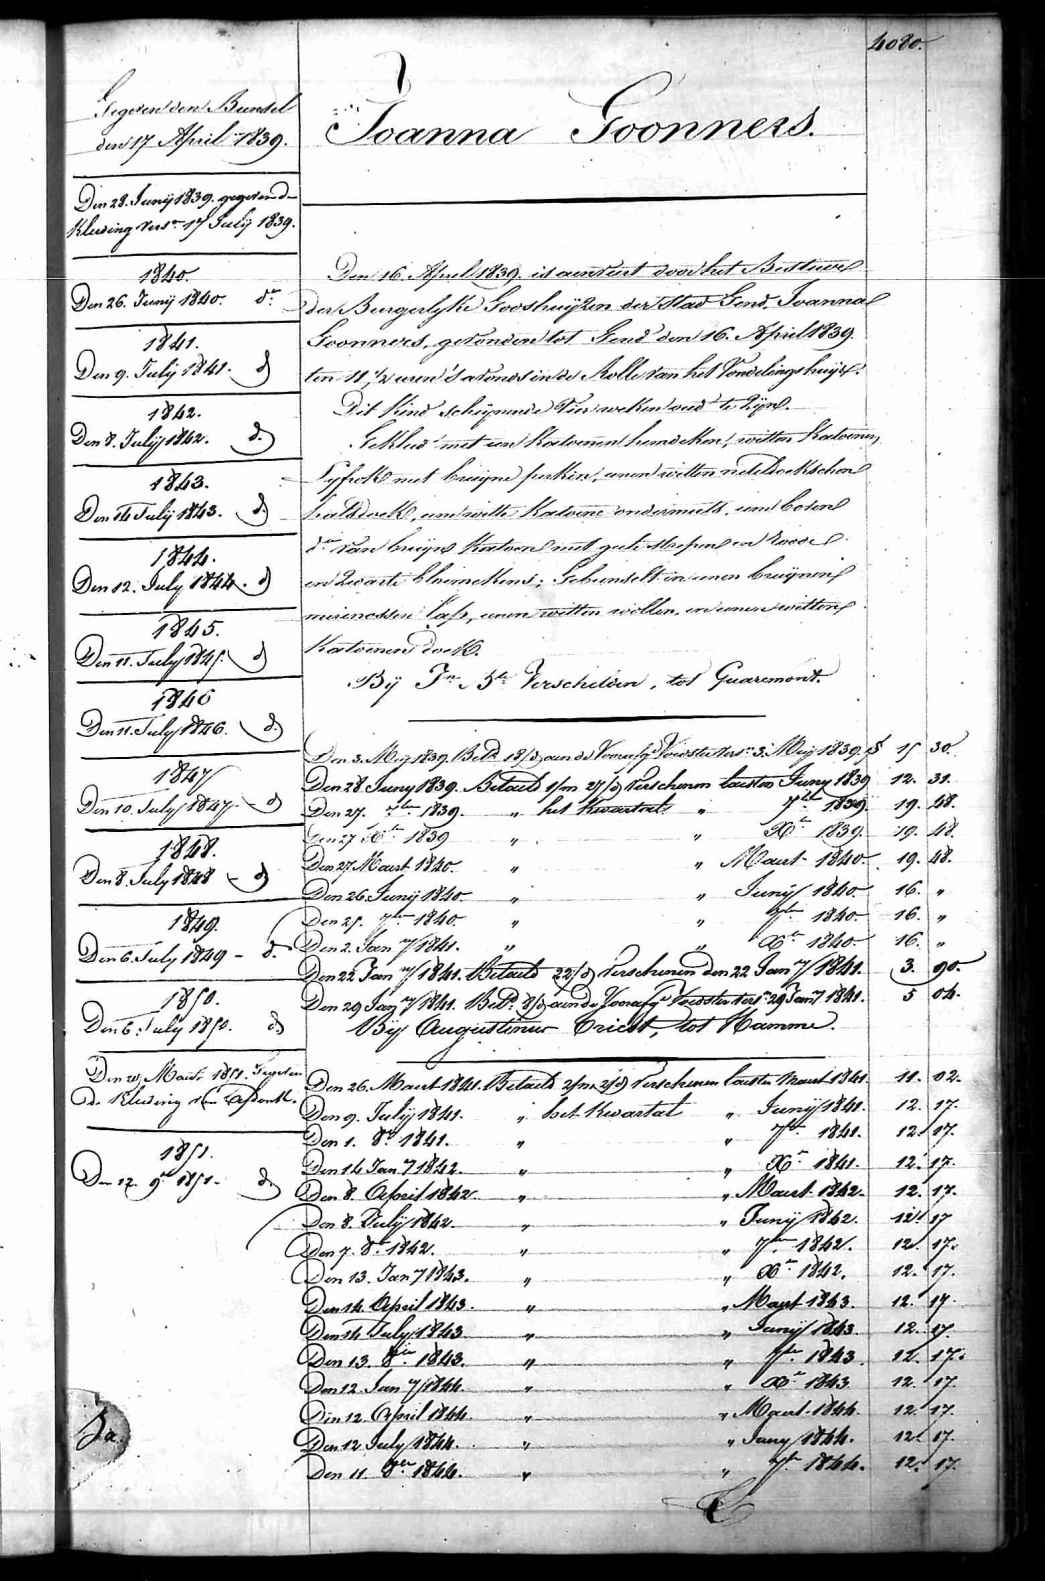 4080.
Gegeven den Bundel
den 17 April 1839.
Den 28. Junij 1839. gegeven d
Kleeding vers.n 1.n July 1839.
1840.
Den 26. Junij 1840. d.o
1841.
Den 9. Julij 1841. d
1842.
Den 8. Julij 1842. d.
1843.
Den 14 Julij 1843. d.
1844.
Den 12. July 1844. d
1845.
Den 11. July 1845. d
1846
Den 11. July 1846. d.
1847
Den 10. July 1847. d
1848.
Den 8. July 1848 - d
1849.
Den 6. July 1849 - d.
1850.
Den 6. July 1850. d
Den 20 Maart 1851. Gegeven
de Kleeding van
1851.
Den 12 9.r 1851. d
Joanna Goonners.
Den 16. April 1839. is aenveert door het Bestuur
der Burgerlyke Godshuijzen der Stad Gend, Joanna
Goonners, gevonden tot Gend den 16. April 1839.
ten 11 1/2 uren 's avonds in de Rolle van het Vondelingshuijs.
Dit kind schijnende Tien weken oud te zijn.
Gekleed met een Katoenen hemdeken, witten Katoenen
met bruyne perken, eenen witten neteldoekschen
halsdoek, eene witte Katoene ondermuts, eene boven
d.o van bruyn Katoen met gele strepen en roode
en zwarte bloemekens; Gebunselt in eenen bruynen
lap, eenen witten wollen, en eenen witten
Katoenen doek.
Bij J.n B.te Verschelden, tot Quaremont.
Den 3. Meij 1839. Bet.d 18/d aen de Vooraf.g Voedster vers.n 3. Meij 1839. f 15 30.
Den 28 Juny 1839. Betaeld 1/m 27/d verschenen lasten Juny 1839 12. 31.
Den 27. 7.ber 1839. " het Kwartael " 7.ber 1839 19. 48.
Den 27 X.br 1839 " " X.br 1839. 19. 48.
Den 27. Maart 1840. " " Maart 1840. 19. 48.
Den 26. Junij 1840. " " Junij 1840 16. "
Den 25. 7.ber 1840. " " 7.ber 1840. 16. "
Den 2. Jan.y 1841. " " X.br 1840. 16. "
Den 22 Jan.y 1841. Betaeld 22/d verschenen den 22 Jan.y 1841. 3. 90.
Den 29 Jan.y 1841. Bet.d 8/d aen de Vooraf.g Voedster vers.n 29 Jan.y 1841. 5 04.
Bij Augustinus Triest, tot Hamme.
Den 26. Maart 1841. Betaeld 2/m 2/d verschenen lasten Maart 1841. 11. 02.
Den 9. Julij 1841. " het Kwartal " Junij 1841. 12. 17.
Den 1. 8.r 1841. " " 7.br 1841. 12. 17.
Den 14 Jan.y 1842. " " X.r 1841. 12. 17.
Den 8. April 1842. " " Maart 1842. 12. 17.
Den 8. Julij 1842. " " Junij 1842. 12. 17
Den 7. 8.r 1842. " " 7.br 1842. 12. 17.
Den 13. Jan.y 1843. " " X.r 1842. 12. 17.
Den 14. April 1843. " " Maart 1843. 12. 17.
Den 14 July 1843. " " Junij 1843. 12. 17
Den 13. 8.ber 1843. " " 7.br 1843. 12. 17.
Den 12. Jan.y 1844. " " X.r 1843 12. 17.
Den 12. April 1844. " " Maart 1844. 12. 17.
Den 12 July 1844. " " Juny 1844. 12. 17.
Den 11. 8.ber 1844. " " 7.br 1844. 12. 17.